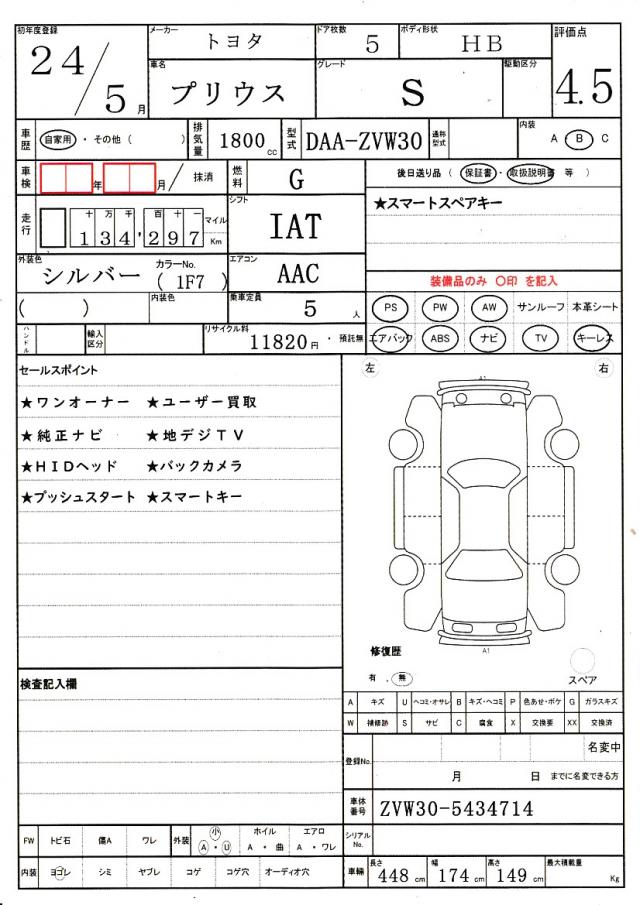 初年度登録
24/5月
メーカー
トヨタ
ドア枚数
5
ボディ形状
HB
評価点
4.5
車名
プリウス
グレード
S
駆動区分
車歴
自家用・その他( )
排気量
1800cc
型式
DAA-ZVW30
通称型式
内装
A B C
車検
年 月 / 抹消
燃料
G
後日送り品(保証書・取扱説明書 等)
★スマートスペアキー
走行
十万千百十一
134,297
マイル
Km
シフト
IAT
外装色
シルバー
カラーNo.
( 1F7 )
エアコン
AAC
装備品のみ 〇印 を記入
( )
内装色
乗車定員
5人
PS PW AW サンルーフ 本革シート
ハンドル
輸入区分
リサイクル料
11820円・預託無
エアバック ABS ナビ TV キーレス
セールスポイント
左 右
A1
★ワンオーナー ★ユーザー買取
★純正ナビ ★地デジTV
★HIDヘッド ★バックカメラ
★プッシュスタート ★スマートキー
A1
修復歴
有 . 無
スペア
検査記入欄
A キズ U ヘコミ・オサレ B キズ・ヘコミ P 色あせ・ボケ G ガラスキズ
W 補修跡 S サビ C 腐食 X 交換要 XX 交換済
登録No.
名変中
月 日 までに名変できる方
車体番号
ZVW30-5434714
シリアルNo.
FW トビ石 傷A ワレ 外装 小 A・U ホイル A・曲 エアロ A・ワレ
内装 ヨゴレ シミ ヤブレ コゲ コゲ穴 オーディオ穴
車輛
長さ
448cm
幅
174cm
高さ
149cm
最大積載量
Kg